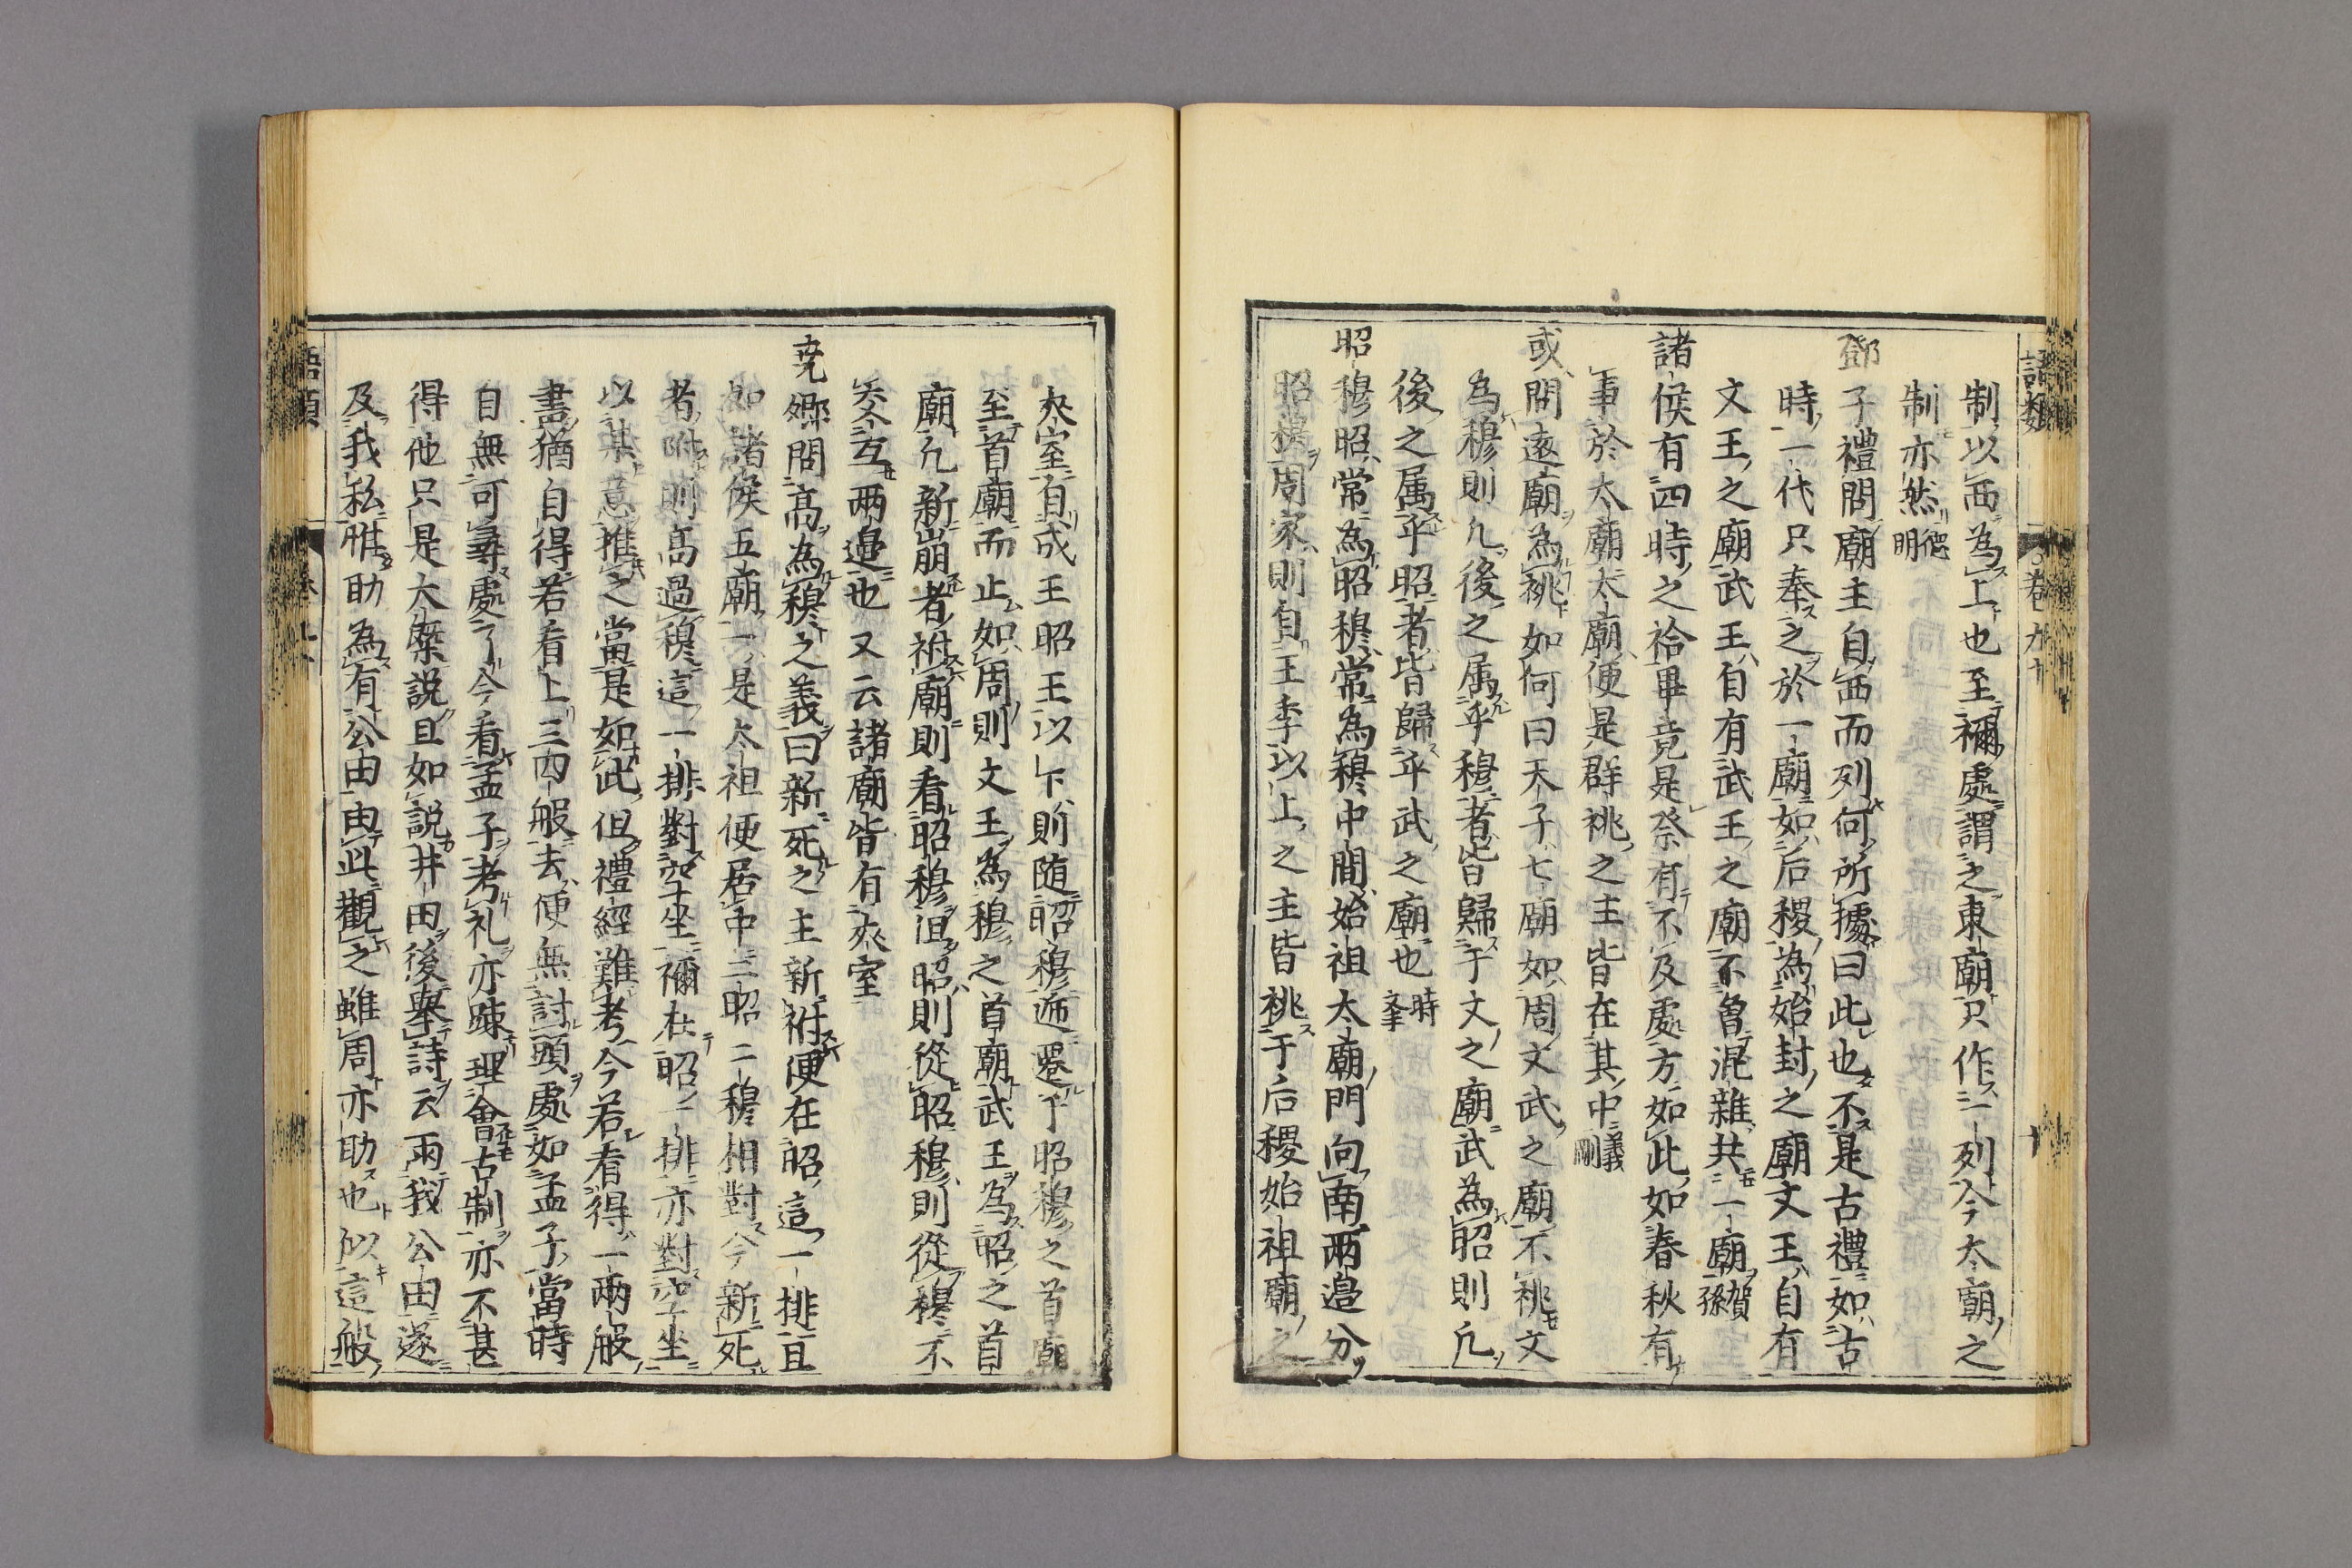 語類
卷九十
十
制以西為上也至禰處謂之東廟只作一列今太廟之
制亦然德明
鄧子禮問廟主自西而列何所據曰此也不是古禮如古
時一代只奉之於一廟如后稷為始封之廟文王自有
文王之廟武王自有武王之廟不曾混雜共一廟賀孫
諸侯有四時之祫畢竟是祭有不及處方如此如春秋有
事於太廟太廟便是群祧之主皆在其中義剛
或問遠廟為祧如何曰天子七廟如周文武之廟不祧文
為穆則凡後之属乎穆者皆歸于文之廟武為昭則凡
後之属乎昭者皆歸乎武之廟也時舉
昭穆昭常為昭穆常為穆中間始祖太廟門向南兩邊分
昭穆周家則自王季以上之主皆祧于后稷始祖廟之
夾室自成王昭王以下則随昭穆逓遷于昭穆之首廟
至首廟而止如周則文王為穆之首廟武王為昭之首
廟凢新崩者祔廟則看昭穆但昭則從昭穆則從穆不
交互兩邊也又云諸廟皆有夾室
堯卿問高為穆之義曰新死之主新祔便在昭這一排且
如諸侯五廟一是太祖便居中二昭二穆相對今新死
者祔則高過穆這一排對空坐禰在昭一排亦對空坐
以某意推之當是如此但禮經難考今若看得一兩般
書猶自得若看上三四般去便無討頭處如孟子當時
自無可尋處了今看孟子考礼亦踈理會古制亦不甚
得他只是大槩說且如說井田後舉詩云雨我公田遂
及我私惟助為有公田由此觀之雖周亦助也似這般
語類